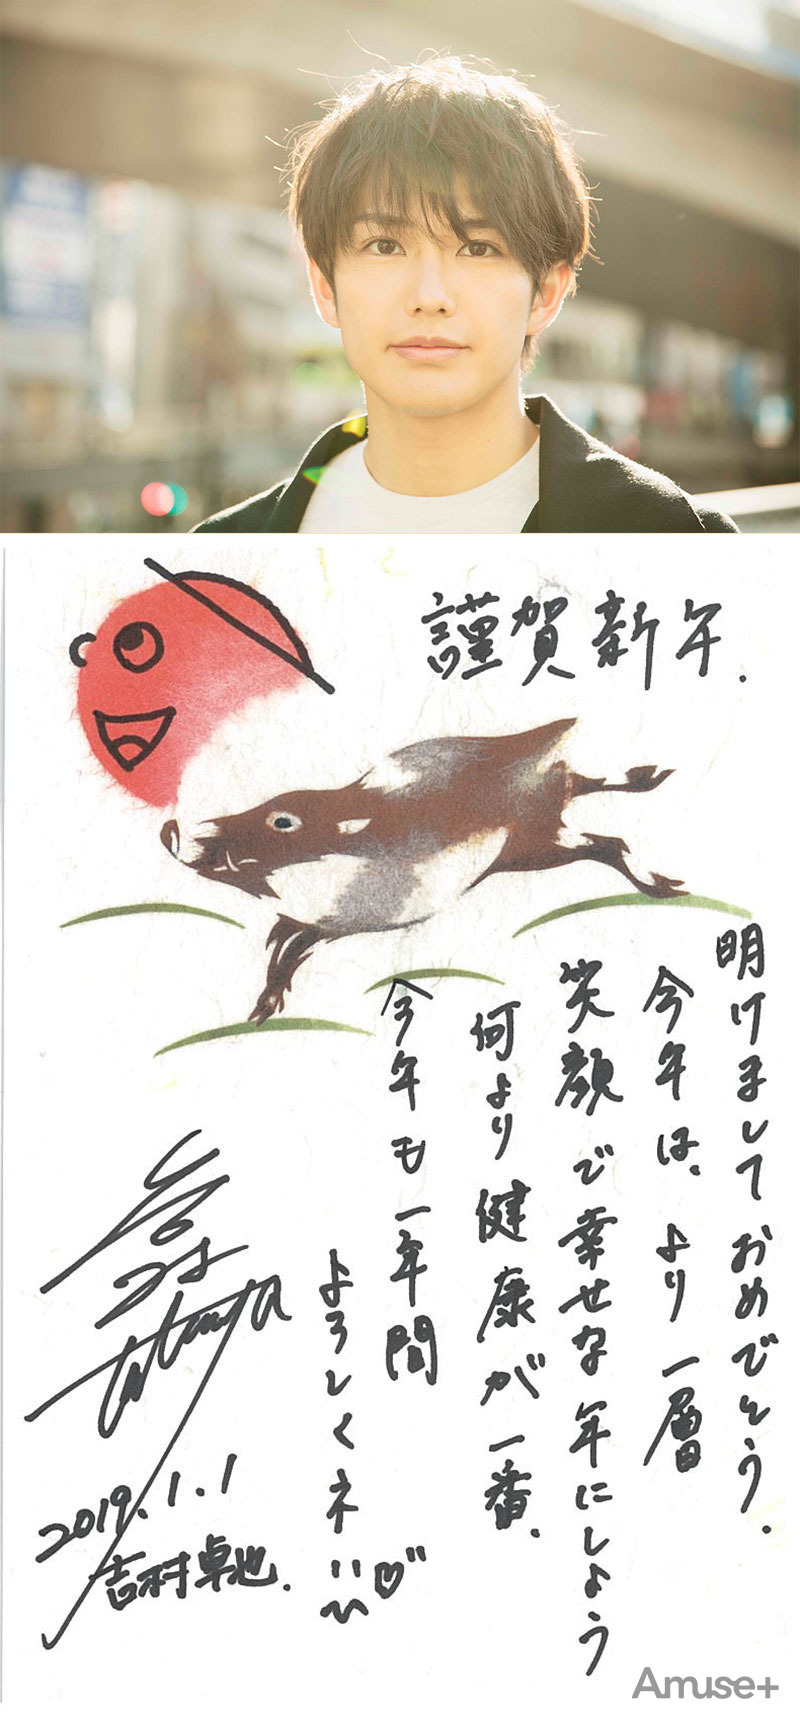 謹賀新年.
明けましておめでとう.
今年は、より一層
笑顔で幸せな年にしよう
何より健康が一番.
今年も一年間
よろしくネ
Takuya
2019.1.1
吉村卓也.
Amuse+